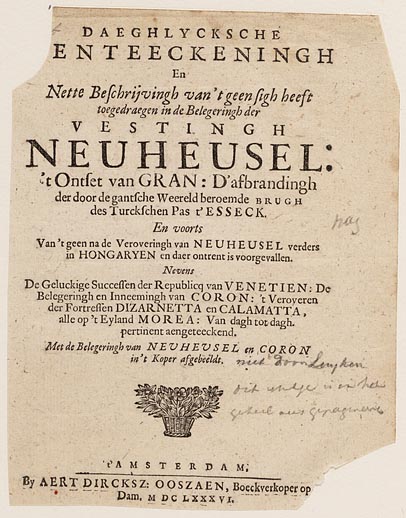 DAEGHLYCKSCHE
ENTEECKENINGH
En
Nette Beschrijvingh van't geen sigh heeft
toegedraegen in de Belegeringh der
VESTINGH
NEUHEUSEL:
't Ontset van GRAN: D'afbrandingh
der door de gantsche Weereld beroemde BRUGH
des Turckschen Pas t'ESSECK.
En voorts
Van't geen na de Veroveringh van NEUHEUSEL verders
in HONGARYEN en daer ontrent is voorgevallen.
Nevens
De Geluckige Successen der Republicq van VENETIEN: De
Belegeringh en Inneemingh van CORON: 't Veroveren
der Fortressen DIZARNETTA en CALAMATTA,
alle op 't Eyland MOREA: Van dagh tot dagh
pertinent aengeteeckend.
Met de Belegeringh van NEUHEUSEL en CORON
in't Koper afgebeeldt.
niet door Luyken
dit is in het
geheel
t'AMSTERDAM,
By AERT DIRCKSZ: OOSZAEN, Boeckverkoper op
Dam. MDCLXXXVI.